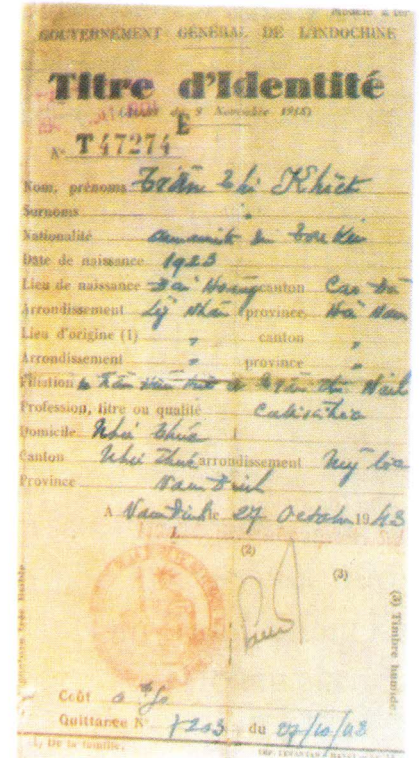 GOUVERNEMENT GÉNÉRAL DE L'INDOCHINE
Titre d'Identité
du 9 Novembre 1918)
N° T47274 E
Nom, prénoms Trần Thị Khích
Surnoms "
Nationalité annamite du Tonkin
Date de naissance 1923
Lieu de naissance Đại Hoàng canton Cao Đà
Arrondissement Lý Nhân province Hà Nam
Lieu d'origine (1) " canton "
Arrondissement " province "
Filiation Trần Thị
Profession, titre ou qualité
Domicile Như Thức
Canton Như Thức arrondissement Mỹ Lộc
Province Nam Định
A Nam Định le 27 October 1943
1.
(2)
(3)
(3) Timbre humide.
Coût
Quittance N° 7203 du 27/10/43
1, De la famille.